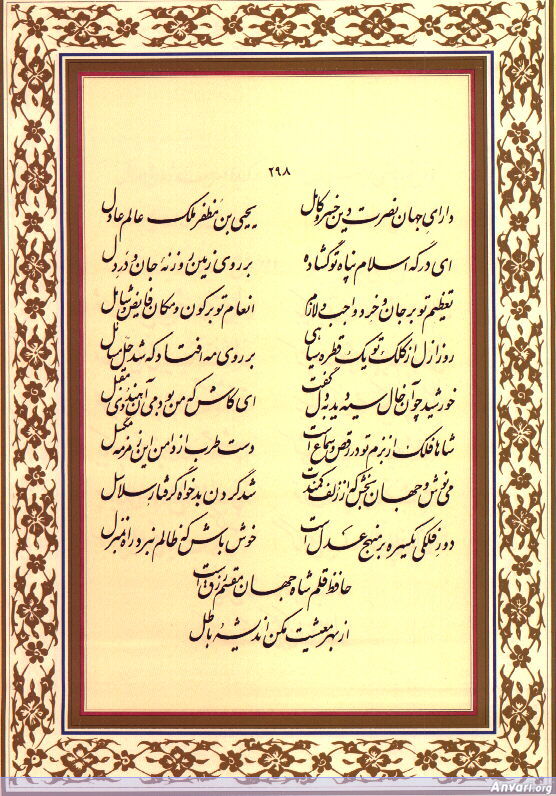 ۲۹۸
دارای جهان نصرت دین خسرو کامل یحیی بن مظفر ملک عالم عادل
ای درگه اسلام پناه تو گشاده بر روی زمین روزنه جان و در دل
تعظیم تو بر جان و خرد واجب و لازم انعام تو بر کون و مکان فایض و شامل
روز ازل از کلک تو یک قطره سیاهی بر روی مه افتاد که شد حل مسائل
خورشید چو آن خال سیه دید به دل گفت ای کاش که من بودمی آن هندوی مقبل
شاها فلک از بزم تو در رقص و سماع است دست طرب از دامن این زمزمه مگسل
می نوش و جهان بخش که از زلف کمندت شد گردن بدخواه گرفتار سلاسل
دور فلکی یکسره بر منهج عدل است خوش باش که ظالم نبرد راه به منزل
حافظ قلم شاه جهان مقسم رزق است
از بهر معیشت مکن اندیشه باطل
Anvari.org